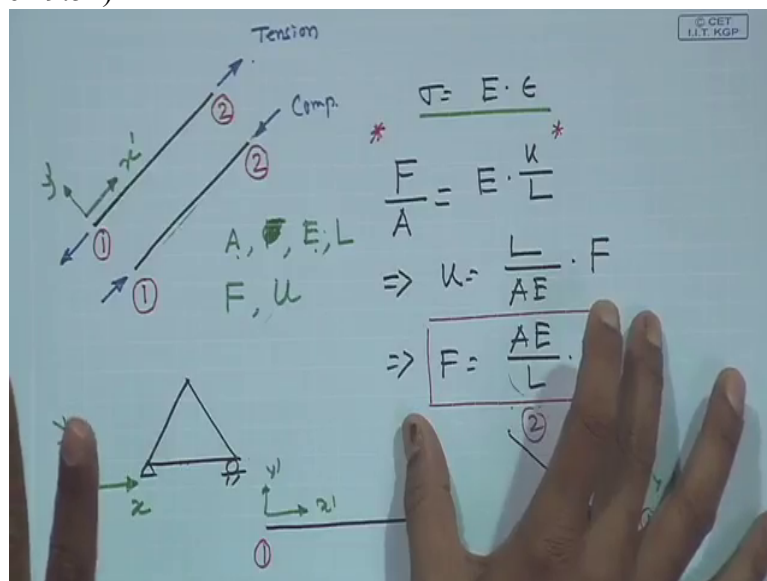 © CET
I.I.T. KGP
Tension
②
Comp.
②
x'
①
①
A, E, L
F, u
σ = E · ϵ
* F/A = E · u/L *
=> u = L/AE · F
=> F = AE/L ·
②
x
y'
x'
①